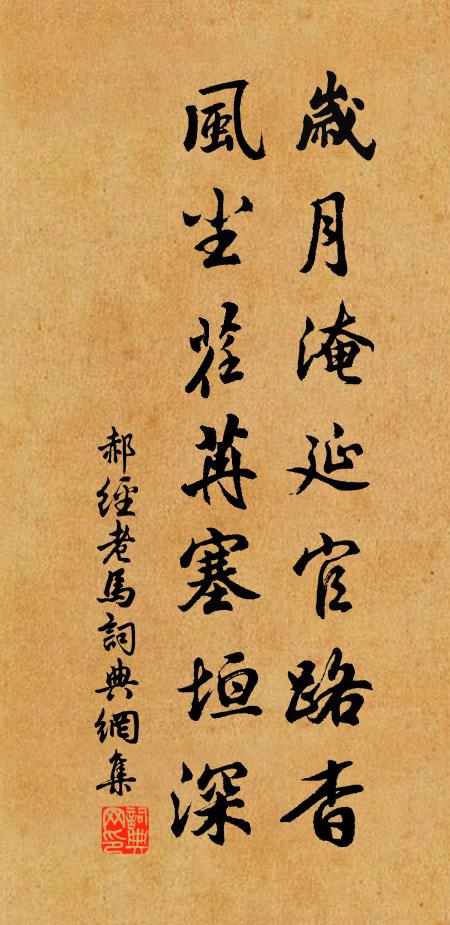 歲月淹延官路杳
風尘荏苒塞垣深
郝經老馬詞典網集
詞典网印